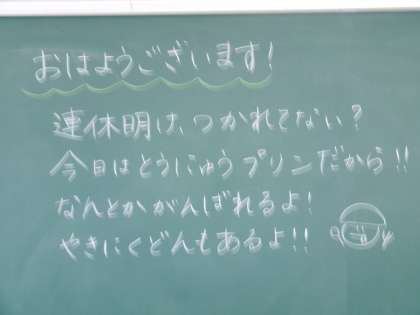 おはようございます!
連休明け、つかれてない?
今日はとうにゅうプリンだから!!
なんとかがんばれるよ!
やきにくどんもあるよ!!